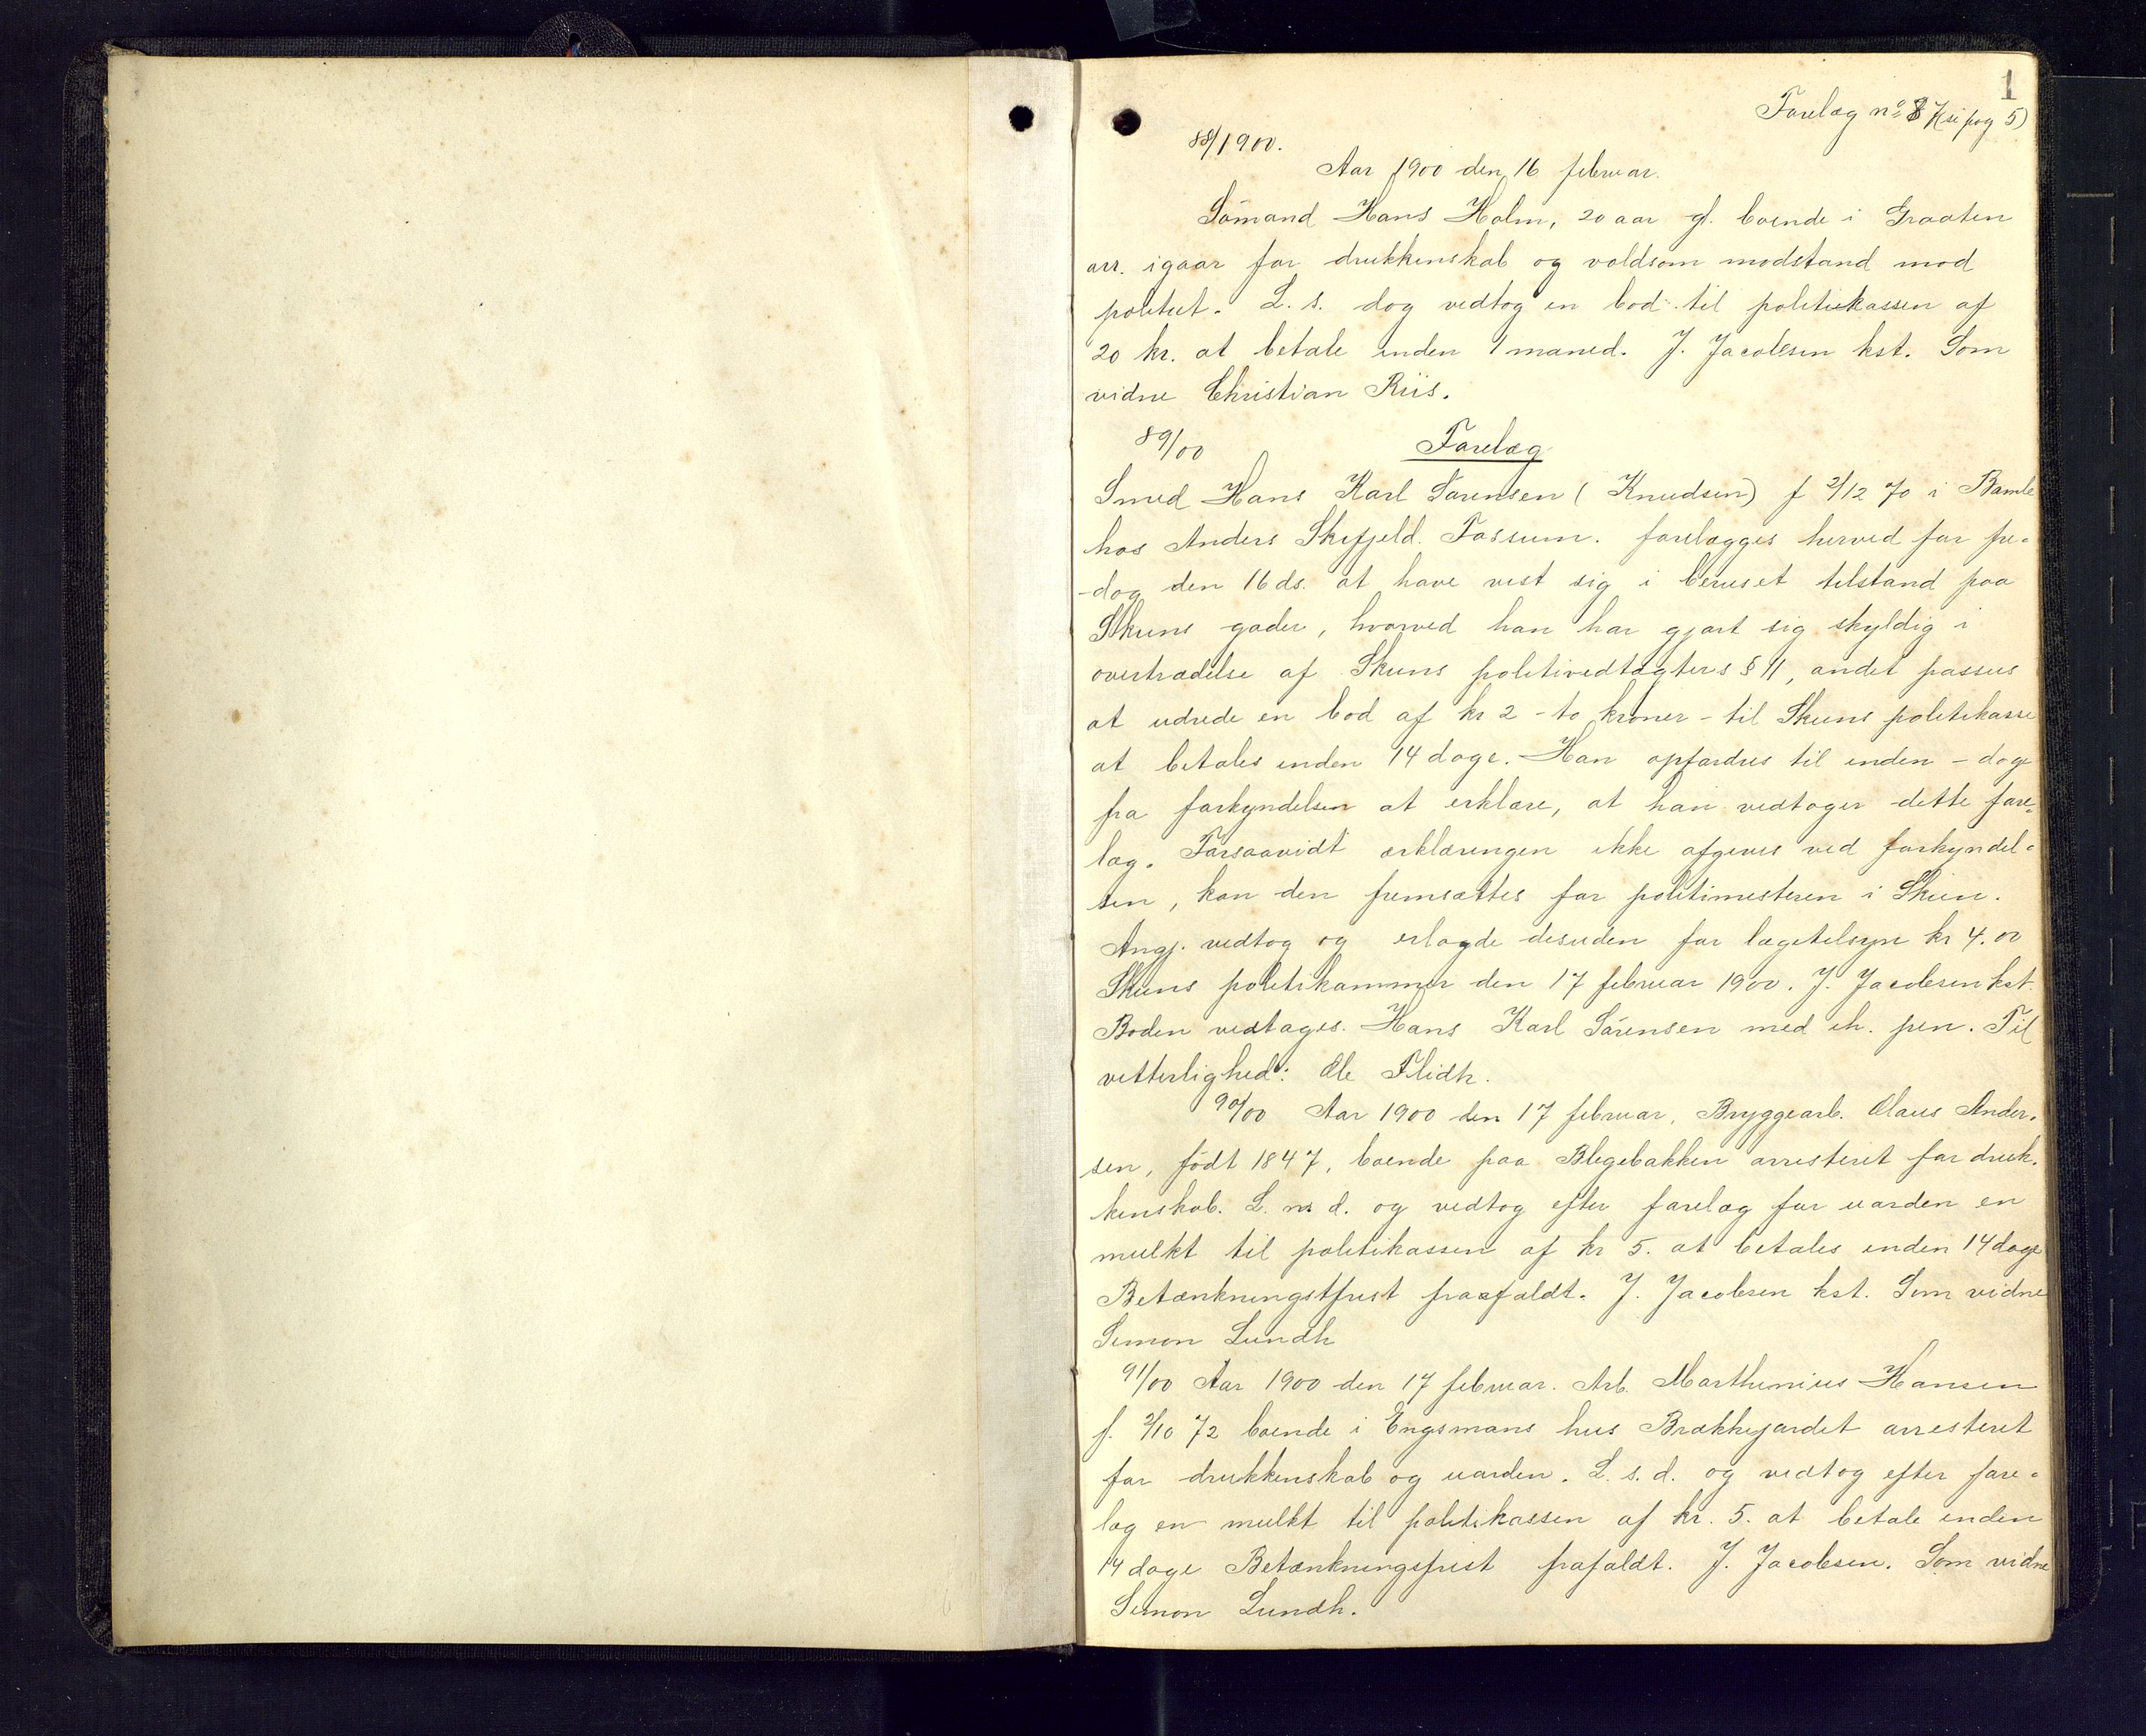 1
Forelæg no 87 (se pag 5)
88/1900.
Aar 1900 den 16 februar.
Sømand Hans Holm, 20 aar gl. boende i Graaten
arr. igaar for drukkenskab og voldsom modstand mod
politiet. L. s. dog vedtog en bod til politiekassen af
20 kr. at betale inden 1 maned. J. Jacobsen kst. Som
vidne Christian Riis.
89/00 Forelæg
Smed Hans Karl Sørensen (Knudsen) f 2/12 70 i Bamle
hos Anders Skifjeld. Fossum. forelægges herved for fre-
-dag den 16 ds. at have vist sig i beruset tilstand paa
Skiens gader, hvorved han har gjort sig skyldig i
overtrædelse af Skiens politivedtægters § 11, andet passus
at udrede en bod af kr 2 - to kroner - til Skiens politikasse
at betales inden 14 dage. Han opfordres til inden - dage
fra forkyndelsen at erklære, at han vedtager dette fore-
læg. Forsaavidt erklæringen ikke afgives ved forkyndel-
sen, kan den fremsættes for politimesteren i Skien.
Angj. vedtog og erlagde desuden for lægetilsyn kr 4.00
Skiens politikammer den 17 februar 1900. J. Jacobsen kst.
Boden vedtages. Hans Karl Sørensen med ih. pen. Til
vitterlighed: Ole Flidh.
90/00 Aar 1900 den 17 februar, Bryggearb. Olaus Ander-
sen, født 1847, boende paa Blegebakken arresteret for druk-
kenskab. L. n. d. og vedtog efter forelæg for uorden en
mulkt til politikassen af kr 5. at betales inden 14 dage
Betænkningstfrist fraafaldt. J. Jacobsen kst. Som vidne
Simon Lundh
91/00 Aar 1900 den 17 februar. Arb. Marthinius Hansen
f. 2/10 72 boende i Engsmans hus Brækkejordet arresteret
for drukkenskab og uorden. L. s. d. og vedtog efter fore-
læg en mulkt til politikassen af kr. 5. at betale inden
14 dage Betænkningsfrist frafaldt. J. Jacobsen. Som vidne
Simon Lundh.